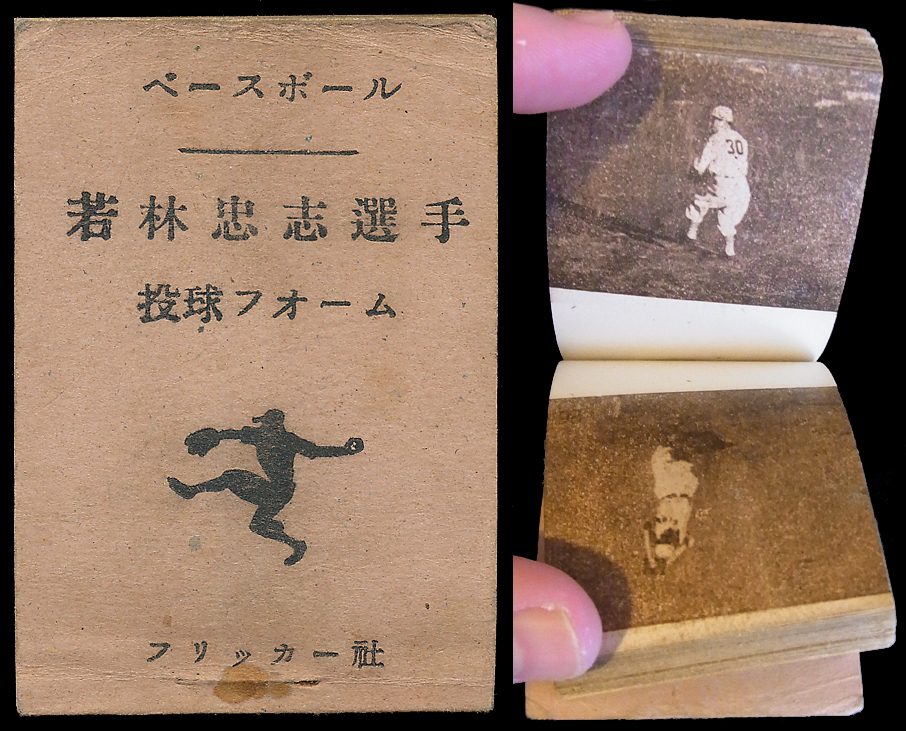 ベースボール
若林忠志選手
投球フオーム
フリッカー社
30